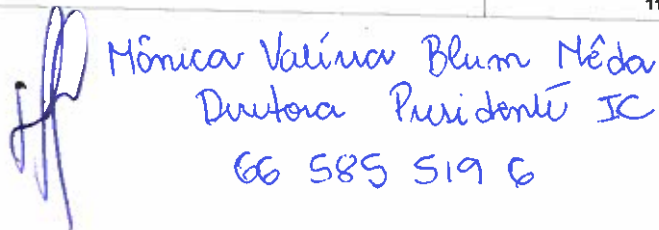 11
Mônica Valéria Blum Mêda
Diretora Presidente IC
66 585 519 6